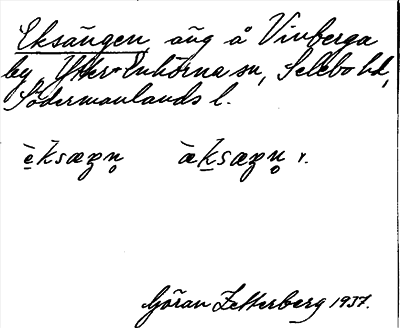 Eksängen, äng å Vinberga
by, Ytter-Enhörna sn, Selebo hd,
Södermanlands l.
è̠ksæŋn̥ àk̠sæŋn̥ v.
Göran Zetterberg 1937.